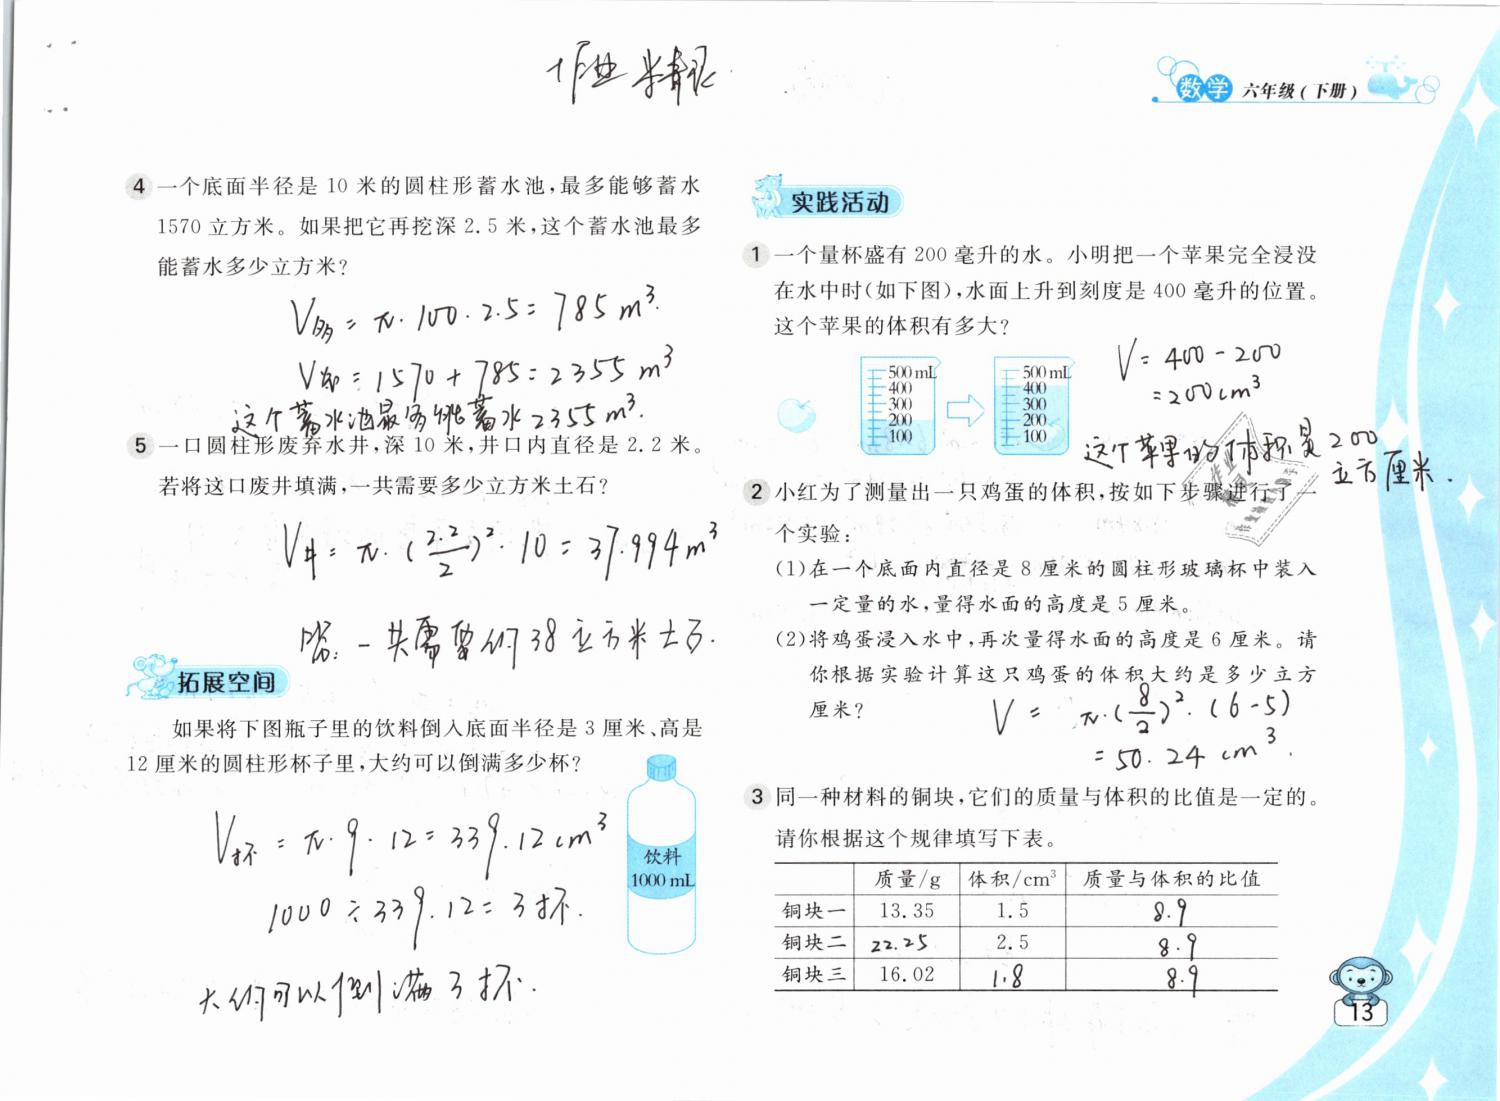 作业精灵
数学 六年级(下册)
4 一个底面半径是 10 米的圆柱形蓄水池,最多能够蓄水
1570 立方米。如果把它再挖深 2.5 米,这个蓄水池最多
能蓄水多少立方米?
V多 = π·100·2.5 = 785 m³.
V都 = 1570 + 785 = 2355 m³
这个蓄水池最多能蓄水2355m³.
5 一口圆柱形废弃水井,深 10 米,井口内直径是 2.2 米。
若将这口废井填满,一共需要多少立方米土石?
V井 = π·(2.2/2)²·10 = 37.994 m³
答:一共需要约38立方米土石.
拓展空间
如果将下图瓶子里的饮料倒入底面半径是 3 厘米、高是
12 厘米的圆柱形杯子里,大约可以倒满多少杯?
饮料
1000 mL
V杯 = π·9·12 = 339.12 cm³
1000 ÷ 339.12 = 3杯.
大约可以倒满3杯.
实践活动
1 一个量杯盛有 200 毫升的水。小明把一个苹果完全浸没
在水中时(如下图),水面上升到刻度是 400 毫升的位置。
这个苹果的体积有多大?
500 mL
400
300
200
100
500 mL
400
300
200
100
V = 400 - 200
= 200 cm³
这个苹果的体积是200
立方厘米.
2 小红为了测量出一只鸡蛋的体积,按如下步骤进行了一
个实验:
(1)在一个底面内直径是 8 厘米的圆柱形玻璃杯中装入
一定量的水,量得水面的高度是 5 厘米。
(2)将鸡蛋浸入水中,再次量得水面的高度是 6 厘米。请
你根据实验计算这只鸡蛋的体积大约是多少立方
厘米?
V = π·(8/2)²·(6-5)
= 50.24 cm³.
3 同一种材料的铜块,它们的质量与体积的比值是一定的。
请你根据这个规律填写下表。
质量/g 体积/cm³ 质量与体积的比值
铜块一 13.35 1.5 8.9
铜块二 22.25 2.5 8.9
铜块三 16.02 1.8 8.9
13